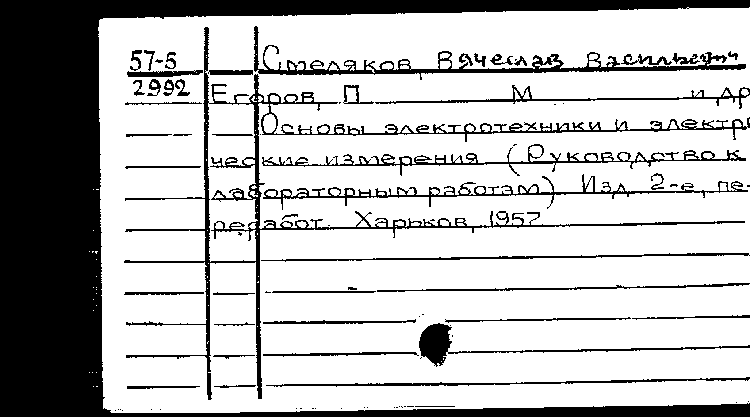 57-5 Смеляков, Вячеслав Васильевич
2992 Егоров, П М и др
Основы электротехники и электри
ческие измерения (Руководство к
лабораторным работам) Изд 2-е, пе-
реработ. Харьков, 1957